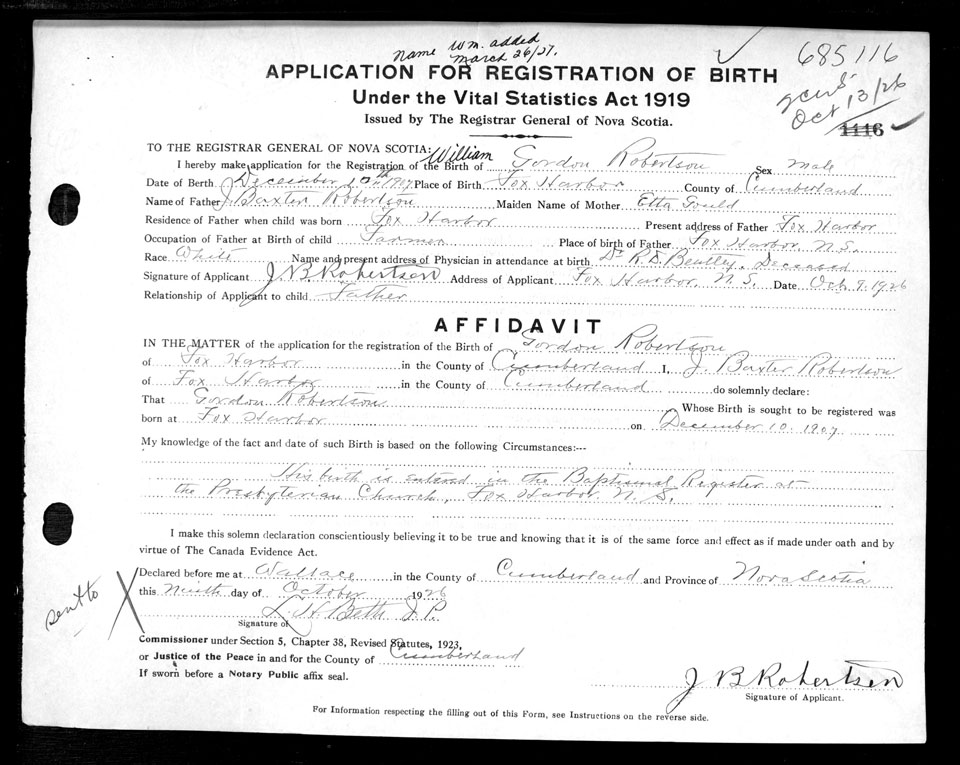 Name Wm. added
March 26/27.
685116
Oct 13/26
1116
APPLICATION FOR REGISTRATION OF BIRTH
Under the Vital Statistics Act 1919
Issued by The Registrar General of Nova Scotia.
TO THE REGISTRAR GENERAL OF NOVA SCOTIA:
I hereby make application for the Registration of the Birth of William Gordon Robertson Sex Male
Date of Birth December 10th 1907 Place of Birth Fox Harbor County of Cumberland
Name of Father J. Baxter Robertson Maiden Name of Mother Etta Gould
Residence of Father when child was born Fox Harbor Present address of Father Fox Harbor
Occupation of Father at Birth of child Farmer Place of birth of Father Fox Harbor N.S.
Race White Name and present address of Physician in attendance at birth Dr R.D. Bentley, Deceased
Signature of Applicant J. B. Robertson Address of Applicant Fox Harbor, N. S. Date Oct 9. 1926
Relationship of Applicant to child Father
AFFIDAVIT
IN THE MATTER of the application for the registration of the Birth of Gordon Robertson
of Fox Harbor in the County of Cumberland I, J. Baxter Robertson
of Fox Harbor in the County of Cumberland do solemnly declare:
That Gordon Robertson Whose Birth is sought to be registered was
born at Fox Harbor on December 10. 1907
My knowledge of the fact and date of such Birth is based on the following Circumstances:--
His birth is entered in the Baptismal Register at
the Presbyterian Church, Fox Harbor N. S.
I make this solemn declaration conscientiously believing it to be true and knowing that it is of the same force and effect as if made under oath and by
virtue of The Canada Evidence Act.
Declared before me at Wallace in the County of Cumberland and Province of Nova Scotia
this Ninth day of October 1926
sent to
J.P.
Signature of
Commissioner under Section 5, Chapter 38, Revised Statutes, 1923,
or Justice of the Peace in and for the County of Cumberland
If sworn before a Notary Public affix seal.
J B Robertson
Signature of Applicant.
For Information respecting the filling out of this Form, see Instructions on the reverse side.